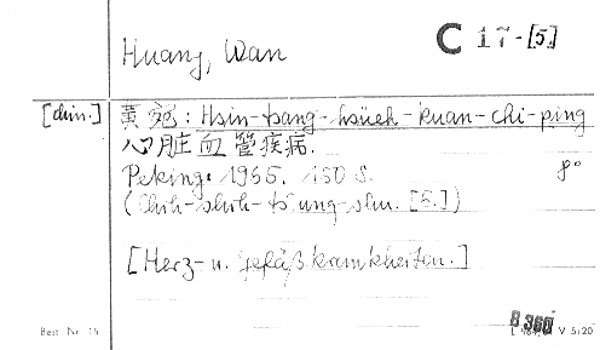 Huang, Wan C 17-[5]
[chin.] 黃宛: Hsin-tsang-hsüeh-kuan-chi-ping
心脏血管疾病.
Peking: 1955. 150 S. 8°
(Chih-shih-ts'ung-shu. [5.])
[Herz- u. Gefäßkrankheiten.]
Best Nr 15 B 360 V 5120